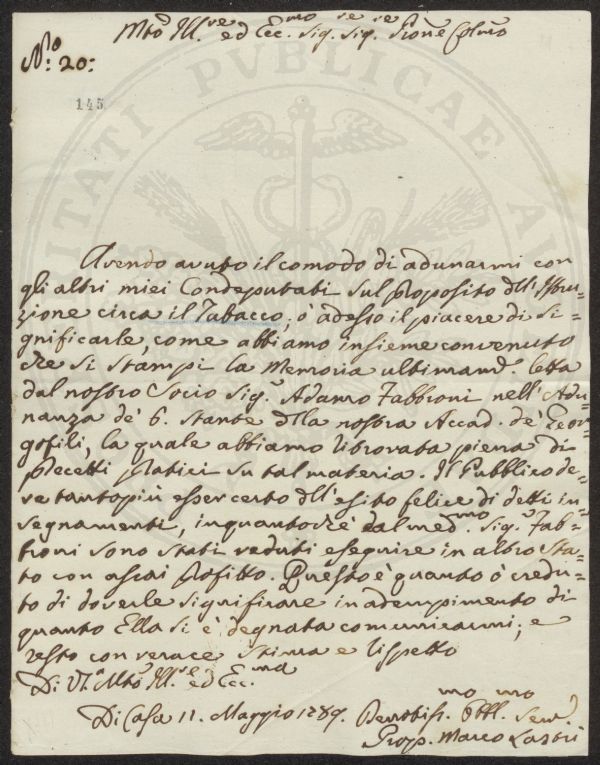 Mto Ill.re ed Ecc.mo Sig.re Sig.re Prone Colmo
No: 20:
145
PVBLICAE
Avendo avuto il comodo di adunarmi con
gli altri miei Condeputati sul proposito dell'Istru-
zione circa il Tabacco, ò adesso il piacere di si-
gnificarle, come abbiamo insieme convenuto
che si stampi la Memoria ultimamd. letta
dal nostro Socio Sigr. Adamo Fabbroni nell'Adu-
nanza de' 6. stante della nostra Accad. de' Geor-
gofili, la quale abbiamo ritrovata piena di
precetti pratici su tal materia. Il Pubblico de-
ve tantopiù esser certo dell'esito felice di detti in-
segnamenti, inquantochè dal med.mo Sigr. Fab-
broni sono stati veduti eseguire in altro Sta-
to con assai profitto. Questo è quanto ò credu-
to di doverle significare in adempimento di
quanto Ella si è degnata comunicarmi; e
resto con verace stima e rispetto
Di V.a Mto Ill.re ed Ecc.ma
Di Casa 11. Maggio 1789. Devotiss.mo Obbl.mo Serv.
Prop. Marco Lastri